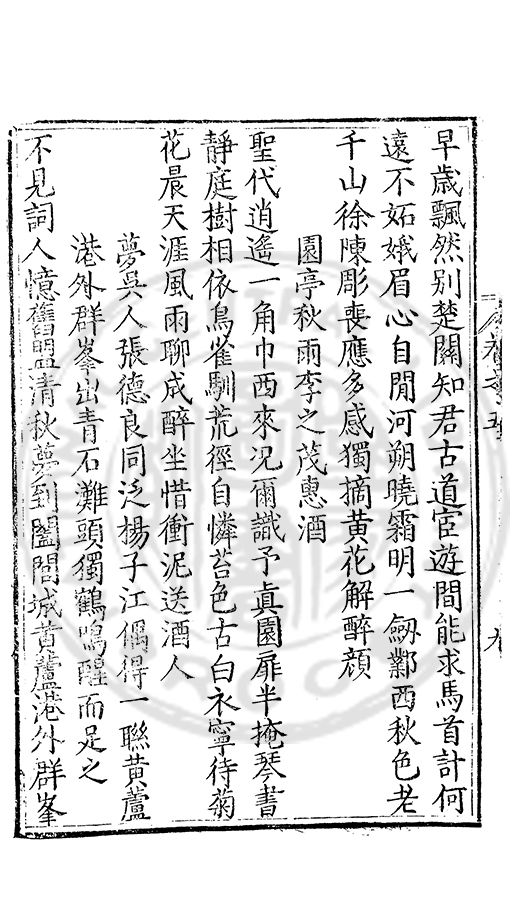 早歲飄然别楚關知君古道宦遊間能求馬首計何
遠不妬娥眉心自閒河朔曉霜明一劔鄴西秋色老
千山徐陳彫喪應多感獨摘黄花解醉顔
園亭秋雨李之茂惠酒
聖代逍遙一角巾西來况爾識予真園扉半掩琴書
靜庭樹相依鳥雀馴荒徑自憐苔色古白衣寧待菊
花晨天涯風雨聊成醉坐惜衝泥送酒人
夢吳人張德良同泛楊子江偶得一聯黄蘆
港外群峯出青石灘頭獨鶴鳴醒而足之
不見詞人憶舊盟清秋夢到闔閭城黄蘆港外群峯
卷之五
九